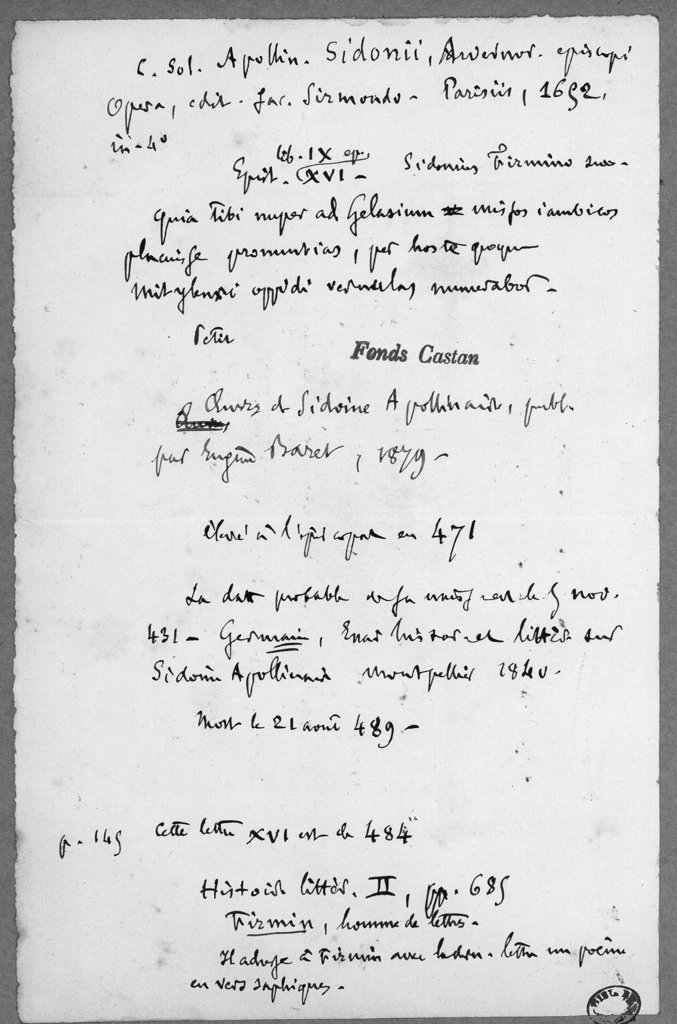 C. Sol. Apollin. Sidonii, Arvernor. episcopi
Opera, edit. Jac. Sirmondo. Parisiis, 1652,
in-4°
lib. IX ep.
Epist. XVI — Sidonius Firmino suo.
quia tibi nuper ad Gelasium missos iambicos
placuisse pronuntias, per hos te quoque
Mitylenæi oppidi vernulas numerabor.
Fonds Castan
Œuvres de Sidoine Apollinaire, publ.
par Eugène Baret, 1879 —
élevé à l'épiscopat en 471
La date probable de sa naiss est le 5 nov.
431 — Germain, Essai histor. et littér. sur
Sidoine Apollinaire Montpellier 1840.
Mort le 21 août 489 —
p. 145 Cette lettre XVI est de 484
Histoire littér. II, pp. 685
Firmin, homme de lettres.
Il adresse à Firmin avec lettre un poème
en vers saphiques.